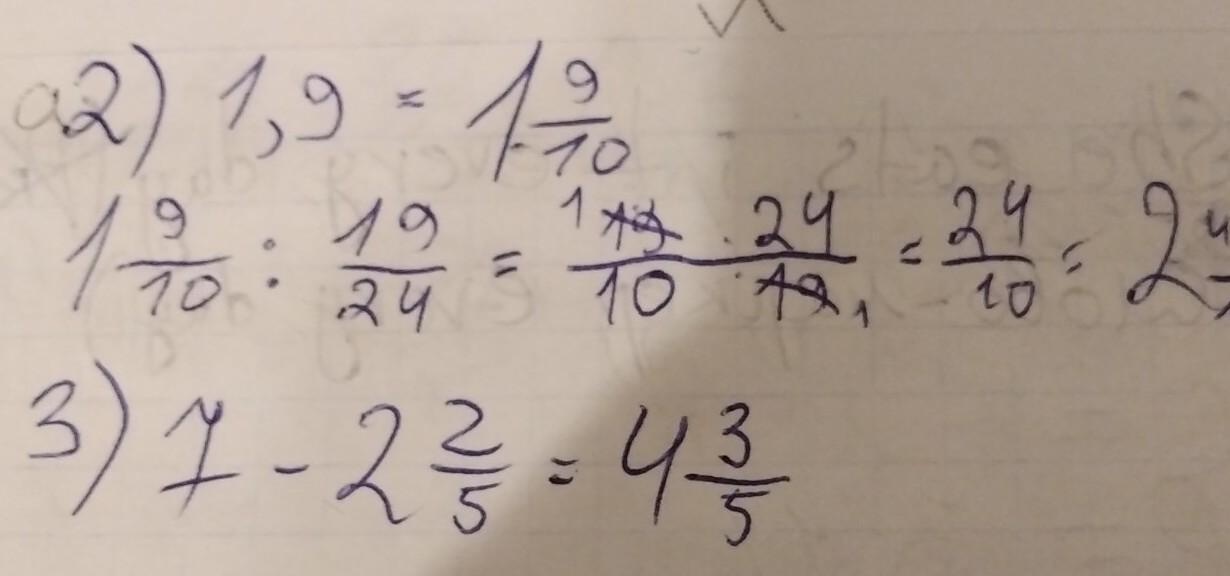 2) 1,9 = 1 9/10
1 9/10 : 19/24 = 19/10 · 24/19 = 24/10 = 2 4/
3) 7 - 2 2/5 = 4 3/5